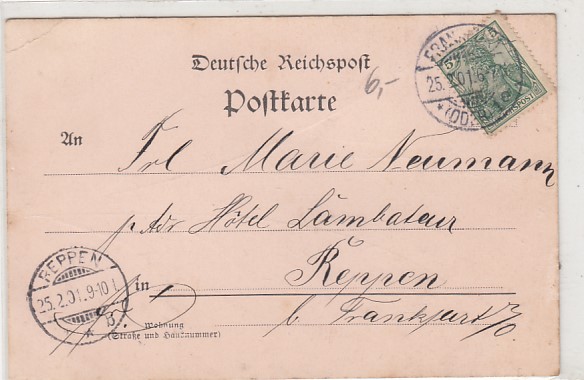 Deutsche Reichspost
Postkarte
6,-
An
Frl Marie Neumann
p Adr Hôtel Lämbateur
in Reppen
b/ Frankfurt ?/O.
Wohnung
(Straße und Hausnummer)
FRANKFURT
25.2.01.6-7N.
* (ODER) 1c
REPPEN
25.2.01.9-10
* B.